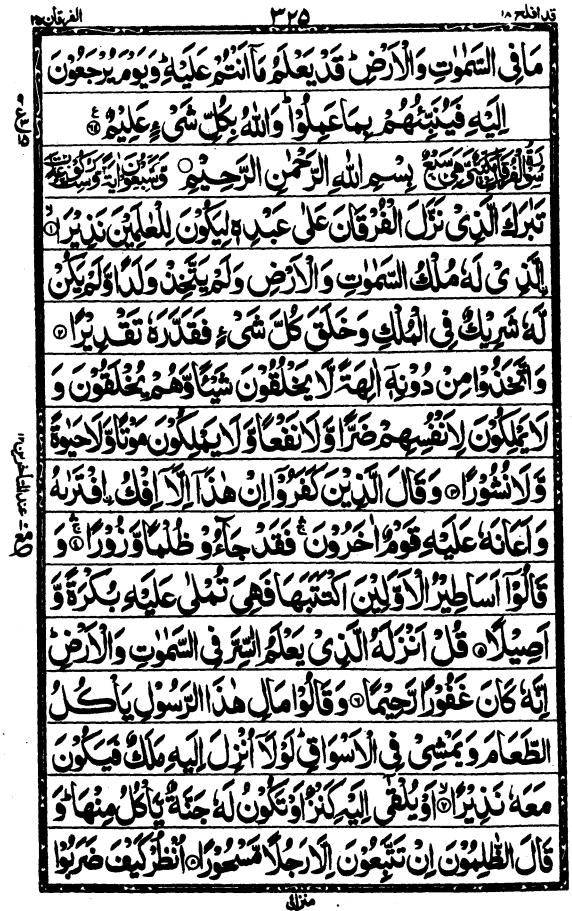 قد افلح ۱۸
۳۲۵
الفرقان ۲۵
مَا فِى السَّمٰوٰتِ وَالْاَرْضِؕ قَدْ يَعْلَمُ مَاۤ اَنْتُمْ عَلَيْهِؕ وَيَوْمَ يُرْجَعُوْنَ
اِلَيْهِ فَيُنَبِّئُهُمْ بِمَا عَمِلُوْاؕ وَاللّٰهُ بِكُلِّ شَىْءٍ عَلِيْمٌ ۶۴
بِسْمِ اللّٰهِ الرَّحْمٰنِ الرَّحِيْمِ
تَبٰرَكَ الَّذِىْ نَزَّلَ الْفُرْقَانَ عَلٰى عَبْدِهٖ لِيَكُوْنَ لِلْعٰلَمِيْنَ نَذِيْرًا ۱
اۨلَّذِىْ لَهٗ مُلْكُ السَّمٰوٰتِ وَالْاَرْضِ وَلَمْ يَتَّخِذْ وَلَدًا وَّلَمْ يَكُنْ
لَّهٗ شَرِيْكٌ فِى الْمُلْكِ وَخَلَقَ كُلَّ شَىْءٍ فَقَدَّرَهٗ تَقْدِيْرًا ۲
وَاتَّخَذُوْا مِنْ دُوْنِهٖۤ اٰلِهَةً لَّا يَخْلُقُوْنَ شَيْئًا وَّهُمْ يُخْلَقُوْنَ وَ
لَا يَمْلِكُوْنَ لِاَنْفُسِهِمْ ضَرًّا وَّلَا نَفْعًا وَّلَا يَمْلِكُوْنَ مَوْتًا وَّلَا حَيٰوةً
وَّلَا نُشُوْرًا ۳ وَقَالَ الَّذِيْنَ كَفَرُوْۤا اِنْ هٰذَاۤ اِلَّاۤ اِفْكُ اۨفْتَرٰىهُ
وَاَعَانَهٗ عَلَيْهِ قَوْمٌ اٰخَرُوْنَۛ فَقَدْ جَآءُوْ ظُلْمًا وَّزُوْرًا ۴ وَ
قَالُوْۤا اَسَاطِيْرُ الْاَوَّلِيْنَ اكْتَتَبَهَا فَهِىَ تُمْلٰى عَلَيْهِ بُكْرَةً وَّ
اَصِيْلًا ۵ قُلْ اَنْزَلَهُ الَّذِىْ يَعْلَمُ السِّرَّ فِى السَّمٰوٰتِ وَالْاَرْضِؕ
اِنَّهٗ كَانَ غَفُوْرًا رَّحِيْمًا ۶ وَقَالُوْا مَالِ هٰذَا الرَّسُوْلِ يَاْكُلُ
الطَّعَامَ وَيَمْشِىْ فِى الْاَسْوَاقِؕ لَوْلَاۤ اُنْزِلَ اِلَيْهِ مَلَكٌ فَيَكُوْنَ
مَعَهٗ نَذِيْرًا ۷ اَوْ يُلْقٰۤى اِلَيْهِ كَنْزٌ اَوْ تَكُوْنُ لَهٗ جَنَّةٌ يَّاْكُلُ مِنْهَاؕ وَ
قَالَ الظّٰلِمُوْنَ اِنْ تَتَّبِعُوْنَ اِلَّا رَجُلًا مَّسْحُوْرًا ۸ اُنْظُرْ كَيْفَ ضَرَبُوْا